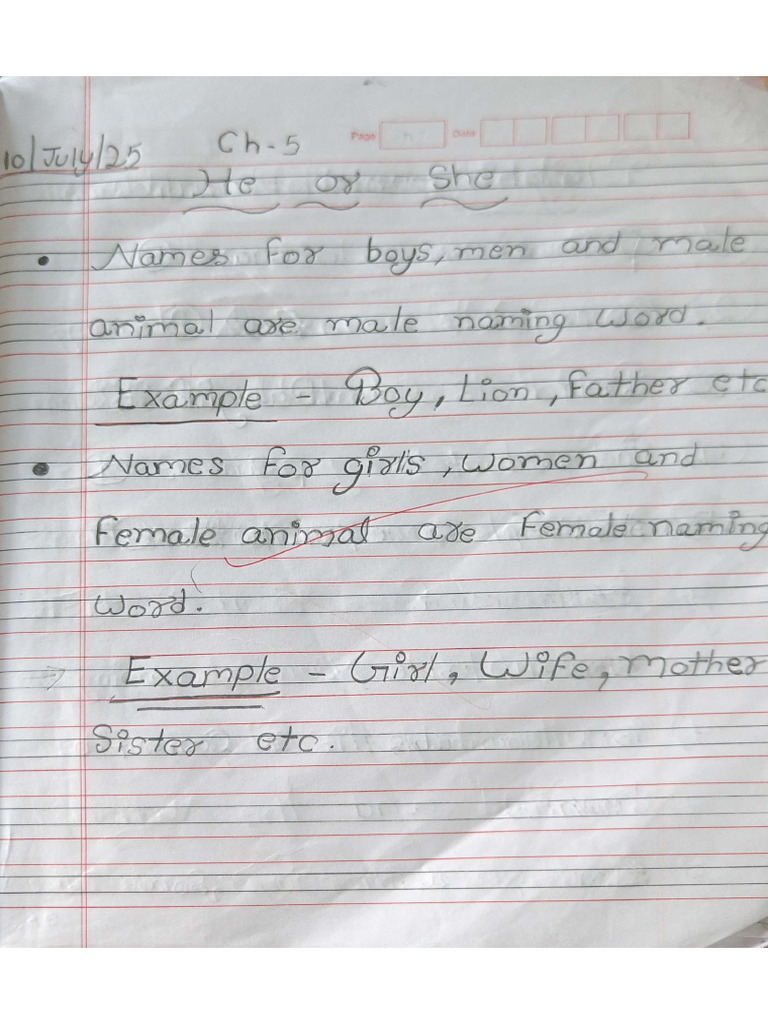 Page Date
10/July/25 Ch-5
He or She
• Names for boys, men and male
animal are male naming word.
Example - Boy, Lion, Father etc
• Names for girls, women and
Female animal are Female naming
word.
→ Example - Girl, Wife, mother
Sister etc.